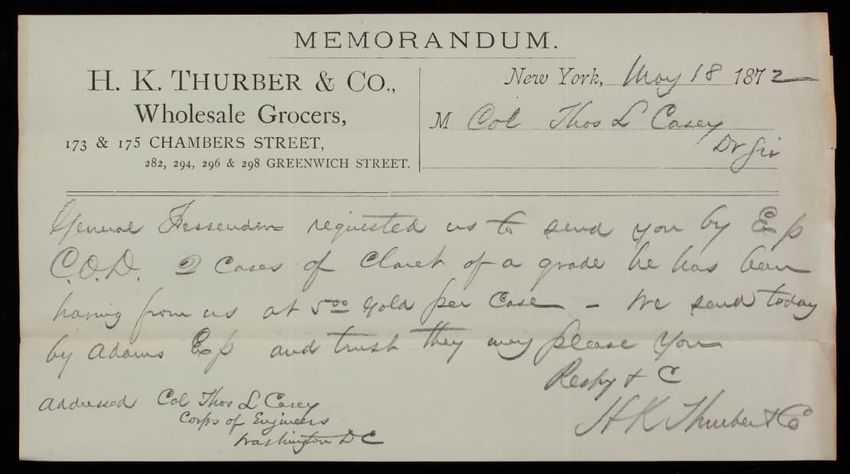 MEMORANDUM.
H. K. THURBER & CO.,
Wholesale Grocers,
173 & 175 CHAMBERS STREET,
282, 294, 296 & 298 GREENWICH STREET.
New York, May 18 1872
M Col Thos L Casey
Dr Sir
General Fessenden requested us to send you by Exp
C.O.D. 2 Cases of Claret of a grade he has been
having from us at 5.00 gold per Case - We send today
by Adams Exp and trust they may please you
Respy & C
H K Thurber & Co
Addressed Col Thos L Casey
Corps of Engineers
Washington DC